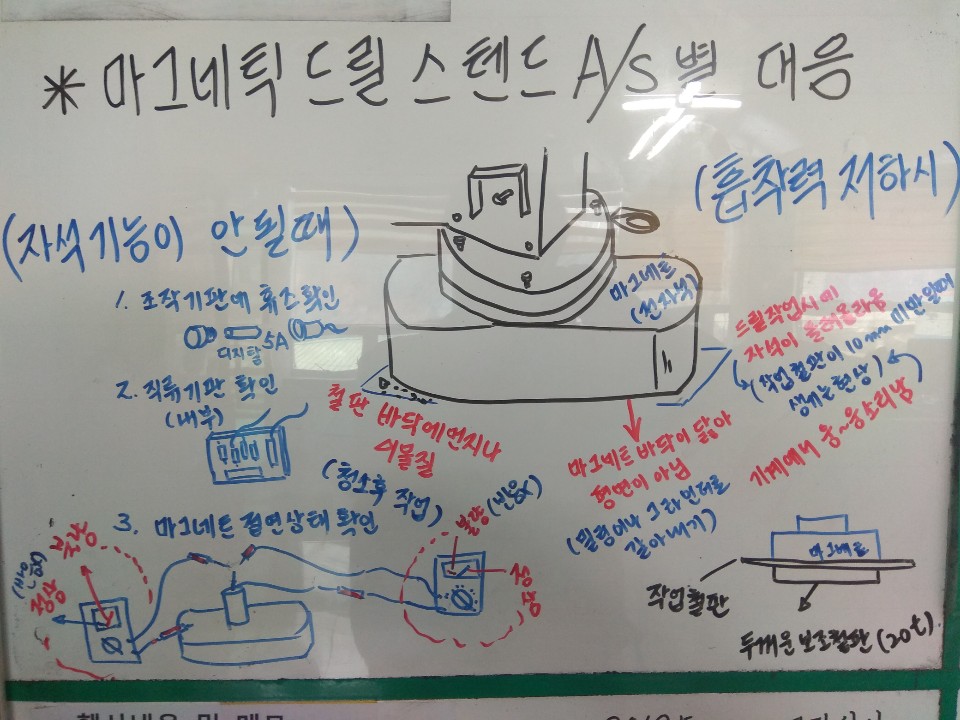 * 마그네틱 드릴 스텐드 A/S별 대응
(자석기능이 안될때)
1. 조작기판에 휴즈확인
디지탈 5A
2. 직류기판 확인
(내부)
3. 마그네트 절연상태 확인
불량
정상
불량 (반응X)
정상
철판 바닥에 먼지나
이물질
(청소후 작업)
(흡착력 저하시)
마그네트
(전자석)
드릴작업시에
자석이 올려올라옴
(작업철판이 10mm 미만일때
생기는 현상)
기계에서 웅~웅소리남
마그네트 바닥이 닳아
평면이 아님
(밀링이나 그라인더로
갈아내기)
마그네트
작업철판
두꺼운 보조철판 (20t)